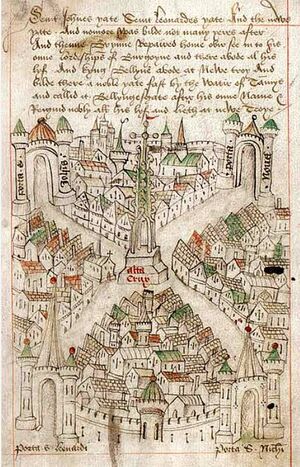 Seint Johnes yate Seint Leonardes yate And the newe
yate. And nomore was bilde not many yeres after
And thenne Brynne repaired home over see in to his
owne lordships of Burgoyne and there abode al his
lyf. And kyng Bellyne abode at Newe troy And
bilde there a noble yate fast by the Watir of Tamys
and callid it Bellyngesgate after his owne Name &
Reigned nobly all his lyf and lieth at newe Troye
porta S
Johis
porta
alta
Crux
Porta S leonardi
Porta S Nichi